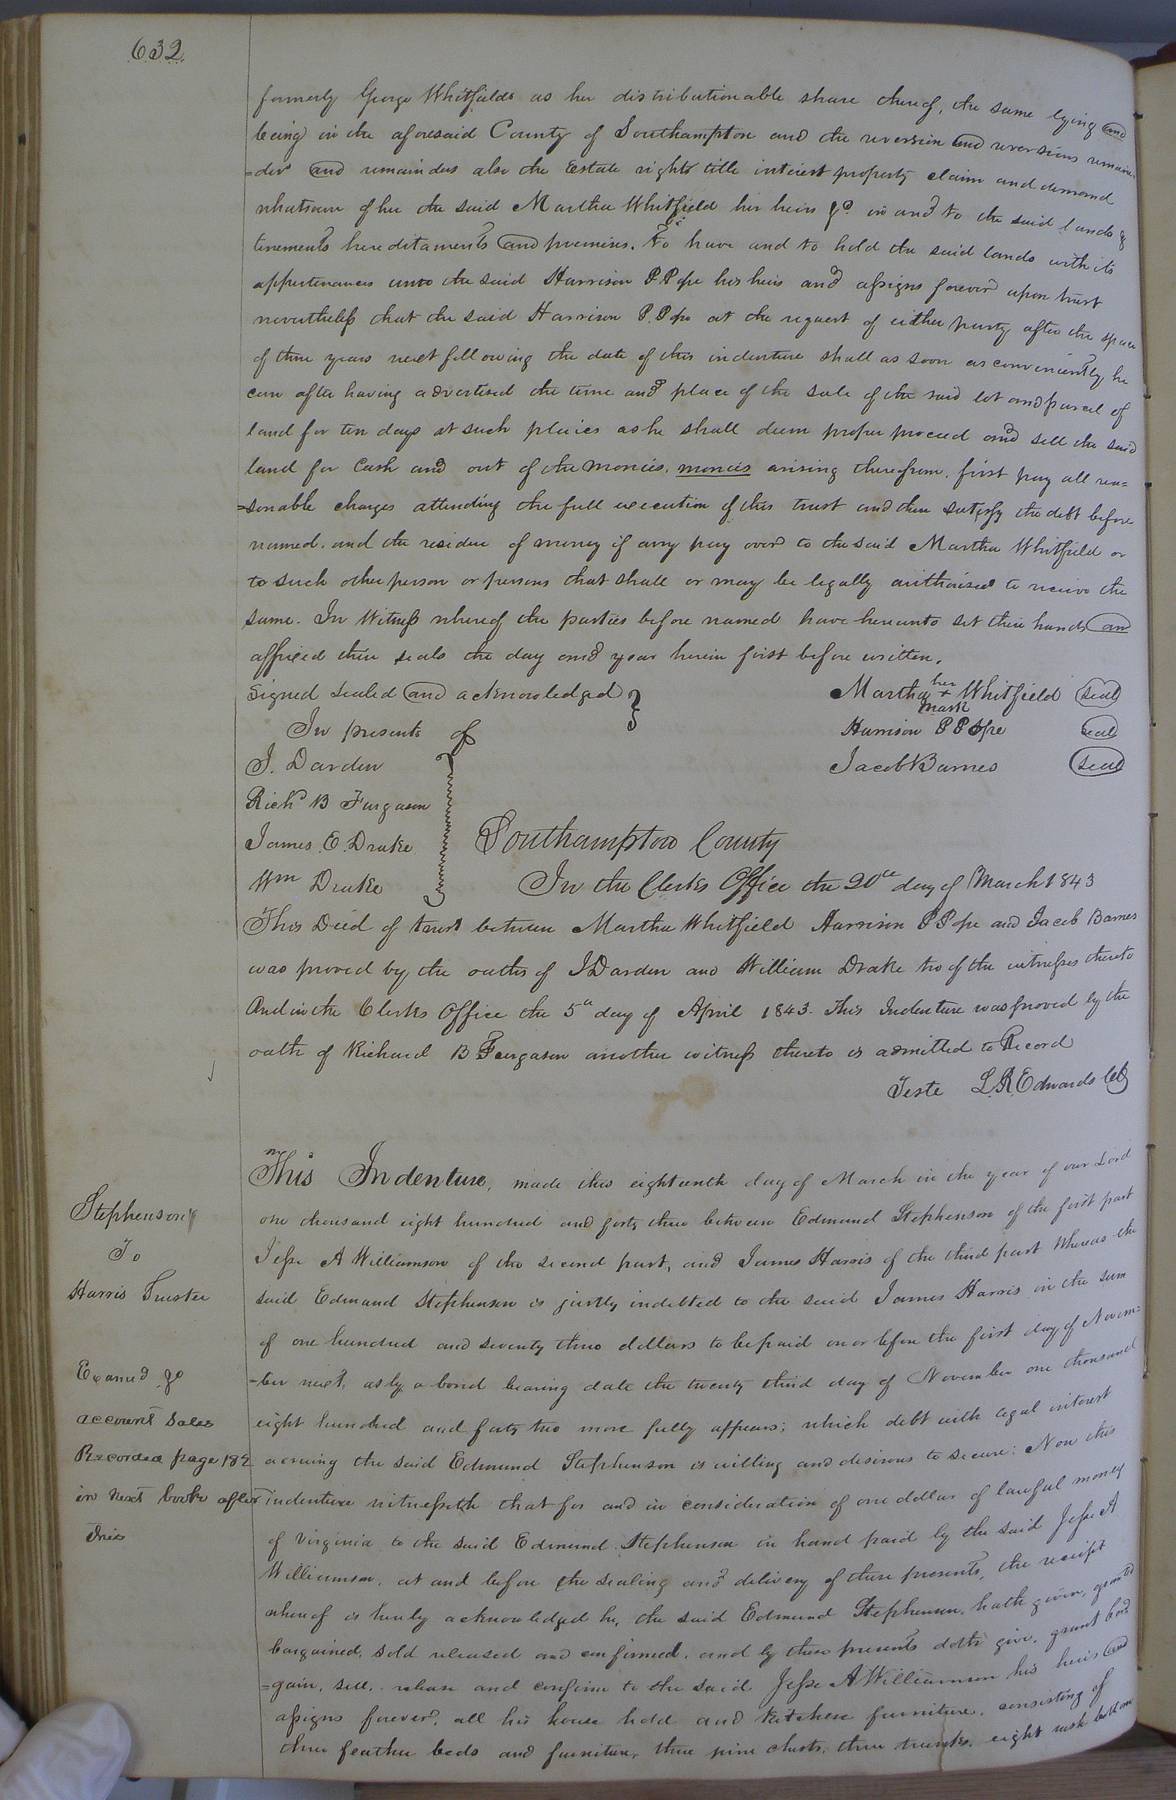 632
formerly George Whitfields as her distributionable share thereof, the same lying and
being in the aforesaid County of Southampton and the reversion and reversions remain
=der and remainders also the Estate right title interest property claim and demand
whatsoever of her the said Martha Whitfield her heirs &c in and to the said lands &
tenements hereditaments and premises. To have and to hold the said lands with its
appurtenances unto the said Harrison P Pope his heirs and assigns forever upon trust
nevertheless that the said Harrison P. Pope at the request of either party after the space
of three years next following the date of this indenture shall as soon as conveniently he
can after having advertised the time and place of the sale of the said lot and parcel of
land for ten days at such places as he shall deem proper proceed and sell the said
land for Cash and out of the monies, monies arising therefrom, first pay all rea=
=sonable charges attending the full execution of this trust and then satisfy the debt before
named, and the residue of money if any pay over to the said Martha Whitfield or
to such other person or persons that shall or may be legally authorized to receive the
same. In Witness whereof the parties before named have hereunto set their hands and
affixed their seals the day and year herein first before written.
Signed sealed and acknowledged } Martha her + mark Whitfield seal
In presents of Harrison P Pope seal
J. Darden Jacob Barnes seal
Richd B Furgason
James E. Drake Southampton County
Wm Drake In the Clerks Office the 20th day of March 1843
This Deed of trust between Martha Whitfield Harrison P Pope and Jacob Barnes
was proved by the oaths of J Darden and William Drake two of the witnesses thereto
And in the Clerks Office the 5th day of April 1843. This Indenture was proved by the
oath of Richard B Furgason another witness thereto is admitted to Record
Teste L. R. Edwards Clk
This Indenture, made this eighteenth day of March in the year of our Lord
Stephenson
one thousand eight hundred and forty three between Edmund Stephenson of the first part
To
Jesse A Williamson of the second part, and James Harris of the third part Whereas the
Harris Trustee
said Edmund Stephenson is justly indebted to the said James Harris in the sum
of one hundred and seventy three dollars to be paid on or before the first day of Novem=
Examd &c
=ber next, as by a bond bearing date the twenty third day of November one thousand
account Sales
eight hundred and forty two more fully appears; which debt with legal interest
Recorded page 182
accruing the said Edmund Stephenson is willing and desirous to secure: Now this
in next book after
indenture witnesseth that for and in consideration of one dollar of lawful money
this
of Virginia to the said Edmund Stephenson in hand paid by the said Jesse A
Williamson, at and before the sealing and delivery of these presents, the receipt
whereof is hereby acknowledged he, the said Edmund Stephenson, hath given, granted
bargained, sold released and confirmed, and by these presents doth give, grant bar
=gain, sell, release and confirm to the said Jesse A Williamson his heirs and
assigns forever, all his house hold and Kitchen furniture, consisting of
three feather beds and furniture, three pine chests, three trunks, eight rush bottom